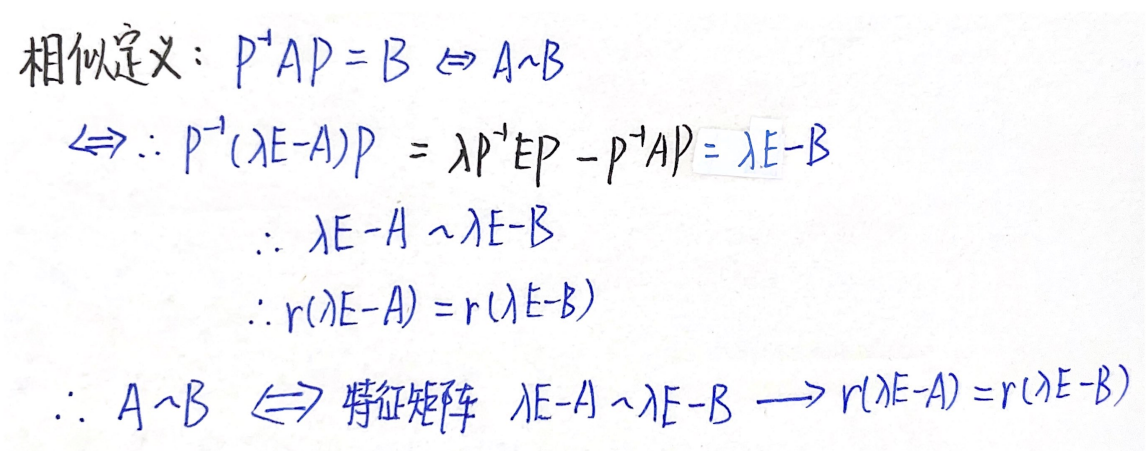 相似定义：P⁻¹AP = B ⇔ A~B
⇔∴ P⁻¹(λE-A)P = λP⁻¹EP - P⁻¹AP = λE-B
∴ λE-A ~ λE-B
∴ r(λE-A) = r(λE-B)
∴ A~B ⇔ 特征矩阵 λE-A ~ λE-B → r(λE-A) = r(λE-B)